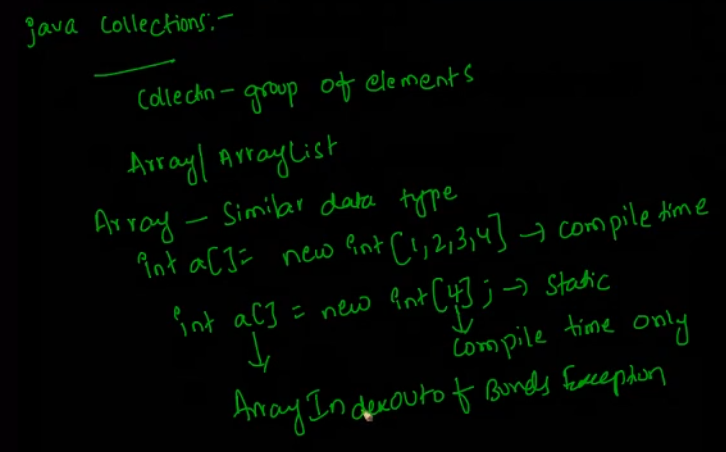 Java Collections:-
Collectn - group of elements
Array/ArrayList
Array - Similar data type
int a[]= new int[1,2,3,4] → compile time
int a[] = new int[4]; → Static
↓ ↓ compile time only
ArrayIndexOutof Bunds Exception